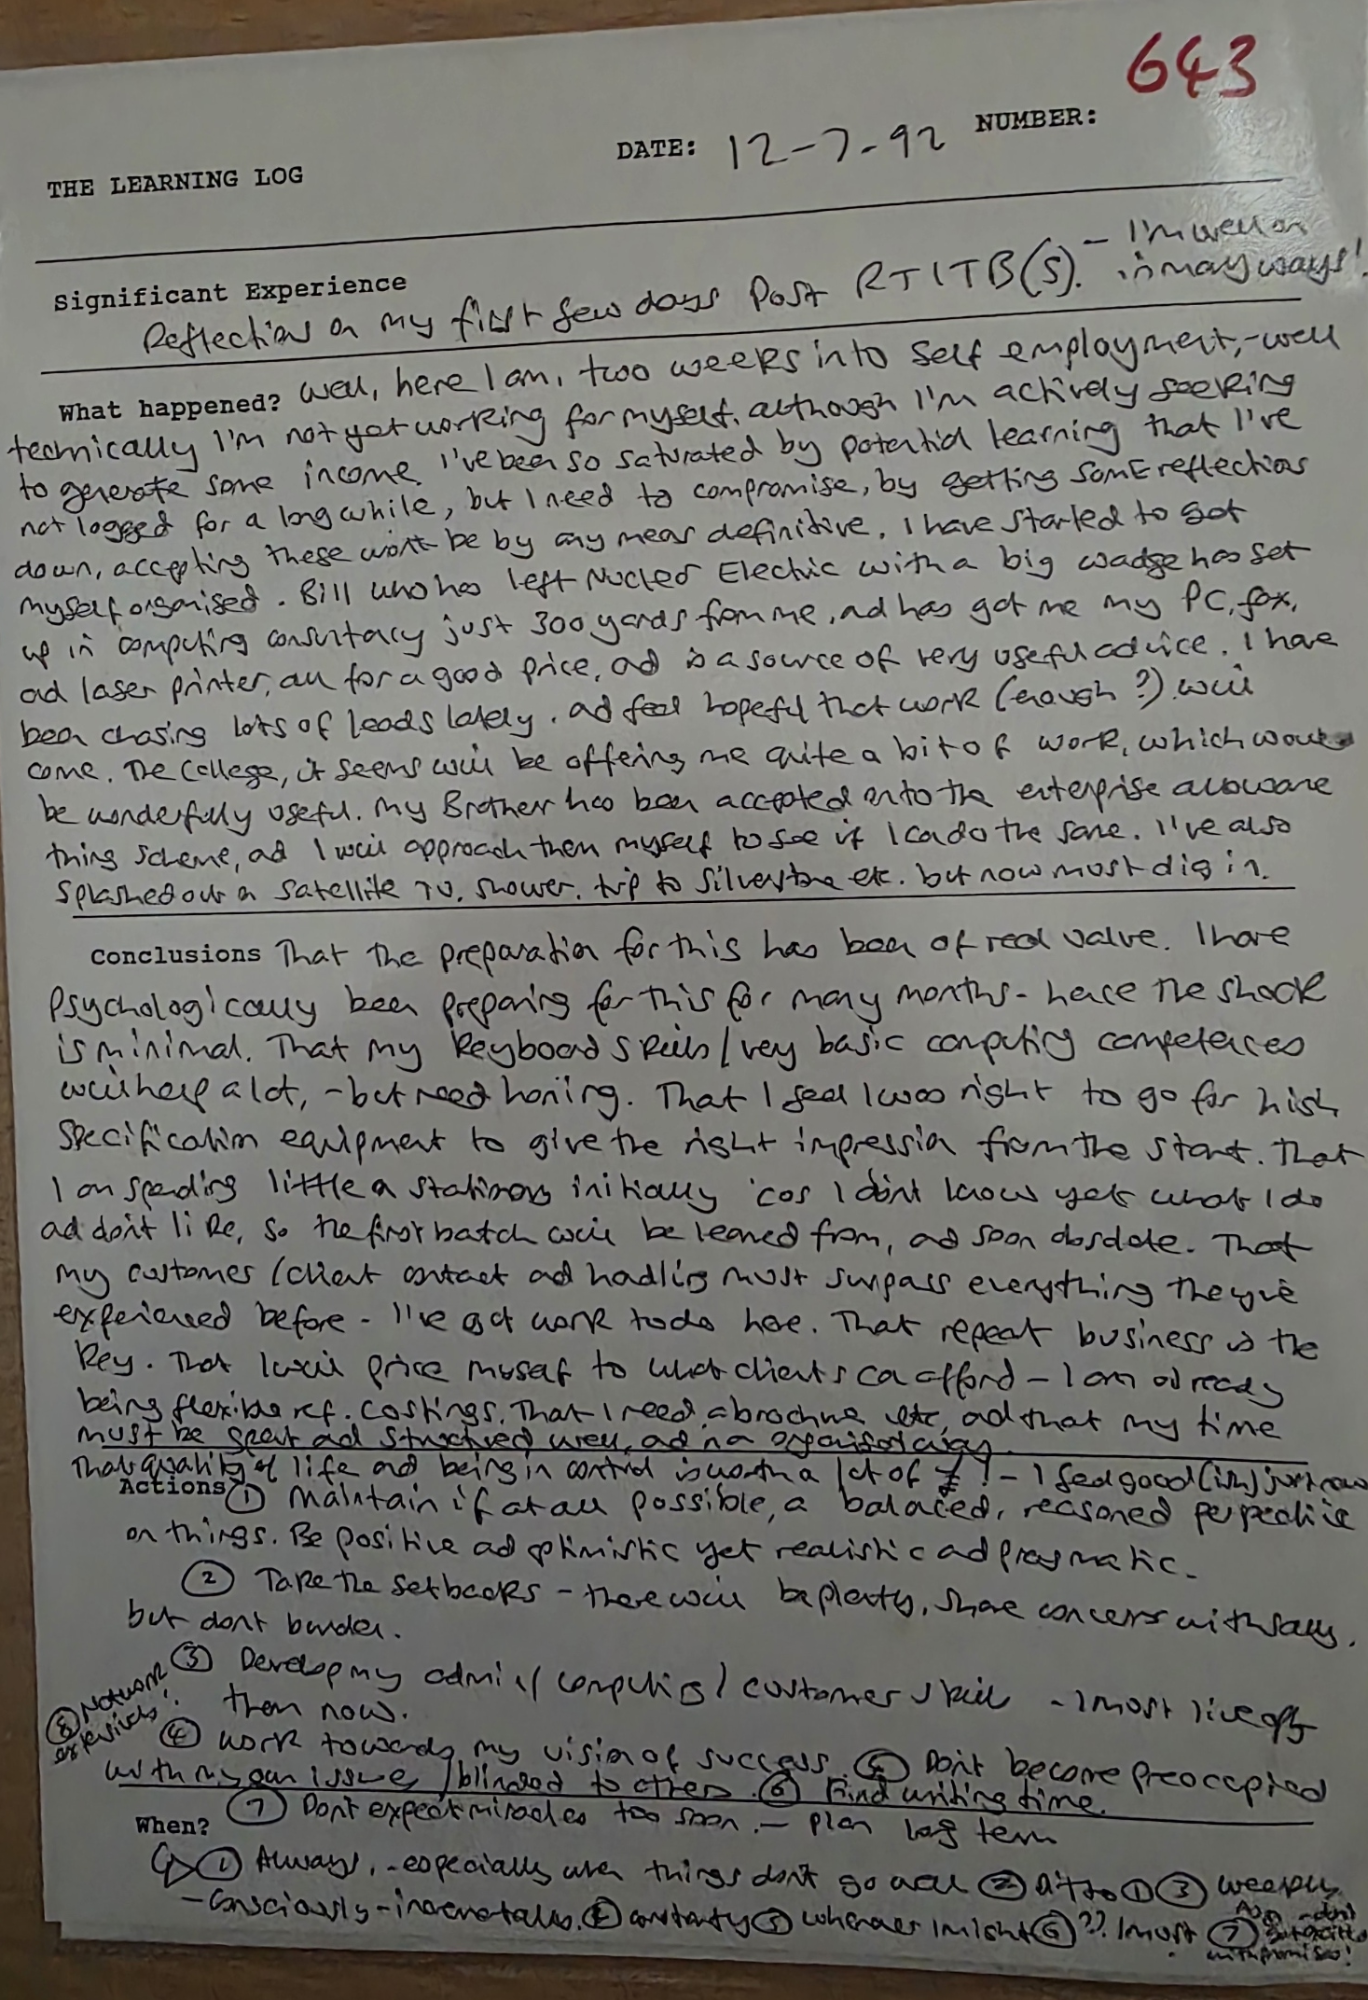 643
THE LEARNING LOG DATE: 12-7-92 NUMBER:
Significant Experience
Reflections on my first few days Post RTITB(S). - I'm well on
in many ways!
What happened? Well, here I am, two weeks into self employment, - well
technically I'm not yet working for myself, although I'm actively seeking
to generate some income. I've been so saturated by potential learning that I've
not logged for a long while, but I need to compromise, by getting SOME reflections
down, accepting these won't be by any means definitive. I have started to get
myself organised. Bill who has left Nuclear Electric with a big wadge has set
up in computing consultancy just 300 yards from me, and has got me my PC, fax,
and laser printer, all for a good price, and is a source of very useful advice. I have
been chasing lots of leads lately, and feel hopeful that work (enough?) will
come. The College, it seems will be offering me quite a bit of work, which would
be wonderfully useful. My Brother has been accepted onto the enterprise allowance
thing scheme, and I will approach them myself to see if I can do the same. I've also
splashed out on satellite TV, shower, trip to Silverstone etc. but now must dig in.
Conclusions That the preparation for this has been of real value. I have
psychologically been preparing for this for many months - hence the shock
is minimal. That my keyboard skills / very basic computing competences
will help a lot, - but need honing. That I feel I was right to go for high
specification equipment to give the right impression from the start. That
I am spending little on stationery initially 'cos I don't know yet what I do
and don't like, so the first batch will be learned from, and soon obsolete. That
my customer / client contact and handling must surpass everything they've
experienced before - I've got work to do here. That repeat business is the
key. That I will price myself to what clients can afford - I am already
being flexible ref. costings. That I need a brochure etc, and that my time
must be spent and structured well, and in a organised way.
That quality of life and being in control is worth a lot of £! - I feel good (ish) just now
Actions ① Maintain if at all possible, a balanced, reasoned perspective
on things. Be positive and optimistic yet realistic and pragmatic.
② Take the setbacks - there will be plenty, share concerns with Sally,
but dont burden.
③ Develop my admin / computing / customer skill - I must live off
them now.
⑧ Network
extensively!
④ Work towards my vision of success. ⑤ Dont become preoccupied
with my own issues / blinded to others. ⑥ Find writing time.
⑦ Dont expect miracles too soon. - plan long term
When?
① Always, - especially when things dont go well ② Ditto ① ③ weekly
- consciously - incrementally. ④ constantly ⑤ whenever I might ⑥ ?? I must ⑦
with promises!